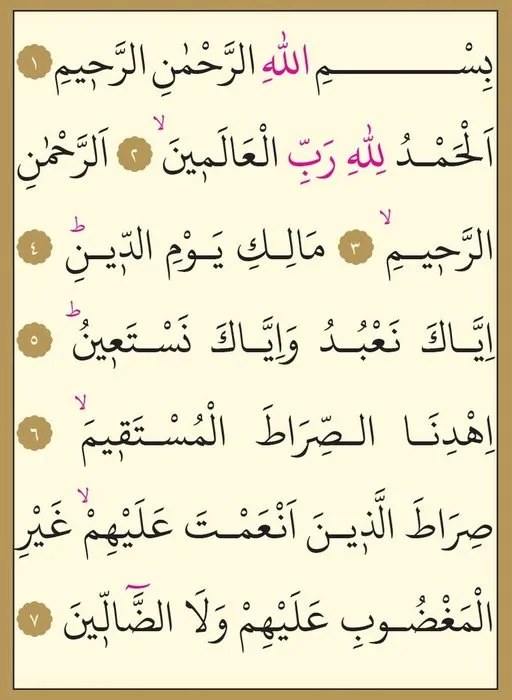 بِسْــــــــمِ اللّٰهِ الرَّحْمٰنِ الرَّحٖيمِ ١
اَلْحَمْـدُ لِلّٰهِ رَبِّ الْعَالَمٖينَ ۙ ٢ اَلرَّحْمٰنِ
الرَّحٖيـمِ ۙ ٣ مَالِـكِ يَـوْمِ الدّٖيـنِ ؕ ٤
اِيَّـاكَ نَعْبُـدُ وَاِيَّـاكَ نَسْـتَعٖينُ ؕ ٥
اِهْدِنَـا الـصِّرَاطَ الْمُسْـتَقٖيمَ ۙ ٦
صِرَاطَ الَّذٖيـنَ اَنْعَمْـتَ عَلَيْهِمْ ۙ غَيْرِ
الْمَغْضُـوبِ عَلَيْهِمْ وَلَا الضَّٓالّٖينَ ٧